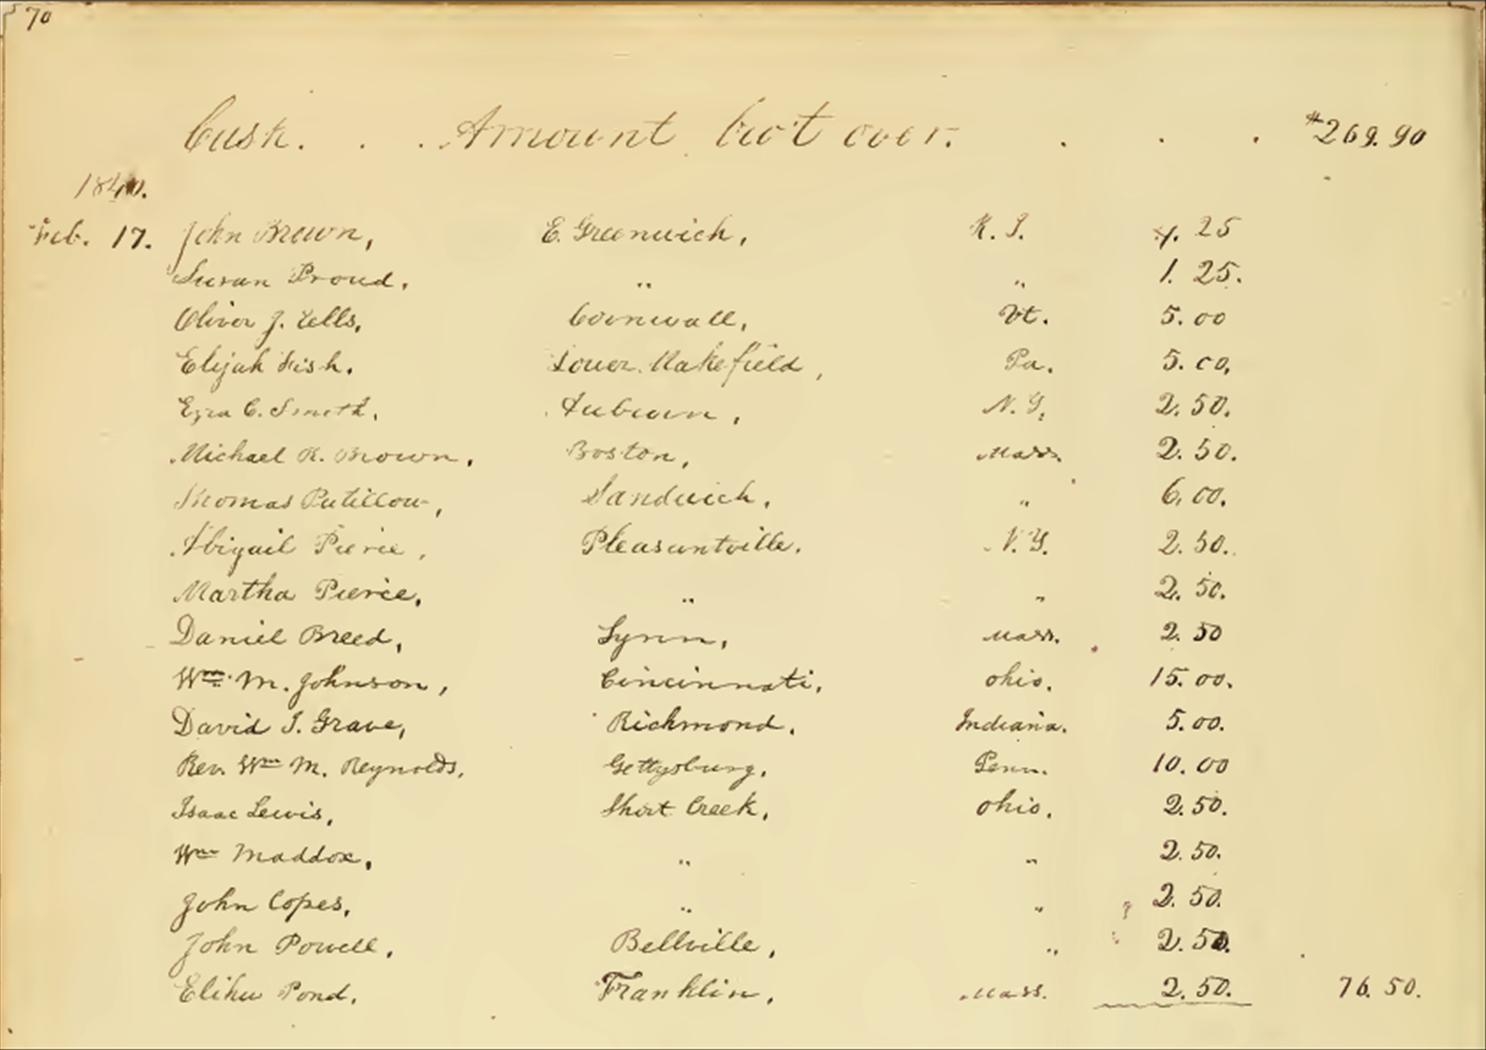 70
Cash. . . Amount bro't over. . . . $269.90
1840.
Feb. 17. John Brown, E. Greenwich, R. I. 4. 25
Susan Proud. " " 1. 25.
Oliver J. Eells, Cornwall, Vt. 5. 00
Elijah Fish. Lower Makefield, Pa. 5. 00,
Ezra C. Smith, Auburn, N. Y. 2. 50.
Michael R. Brown, Boston, Mass. 2. 50.
Thomas Patillow, Sandwich, " 6. 00.
Abigail Pierce, Pleasantville. N. Y. 2. 50.
Martha Pierce, " " 2. 50.
Daniel Breed, Lynn, Mass. 2. 50
Wm. M. Johnson, Cincinnati, ohio. 15. 00.
David I. Grave, Richmond. Indiana. 5. 00.
Rev. Wm M. Reynolds, Gettysburg, Penn. 10. 00
Isaac Lewis, Short Creek, ohio. 2. 50.
Wm Maddox, " " 2. 50.
John Copes, " " 2. 50.
John Powell, Bellville, " 2. 50.
Elihu Pond, Franklin, Mass. 2. 50. 76. 50.